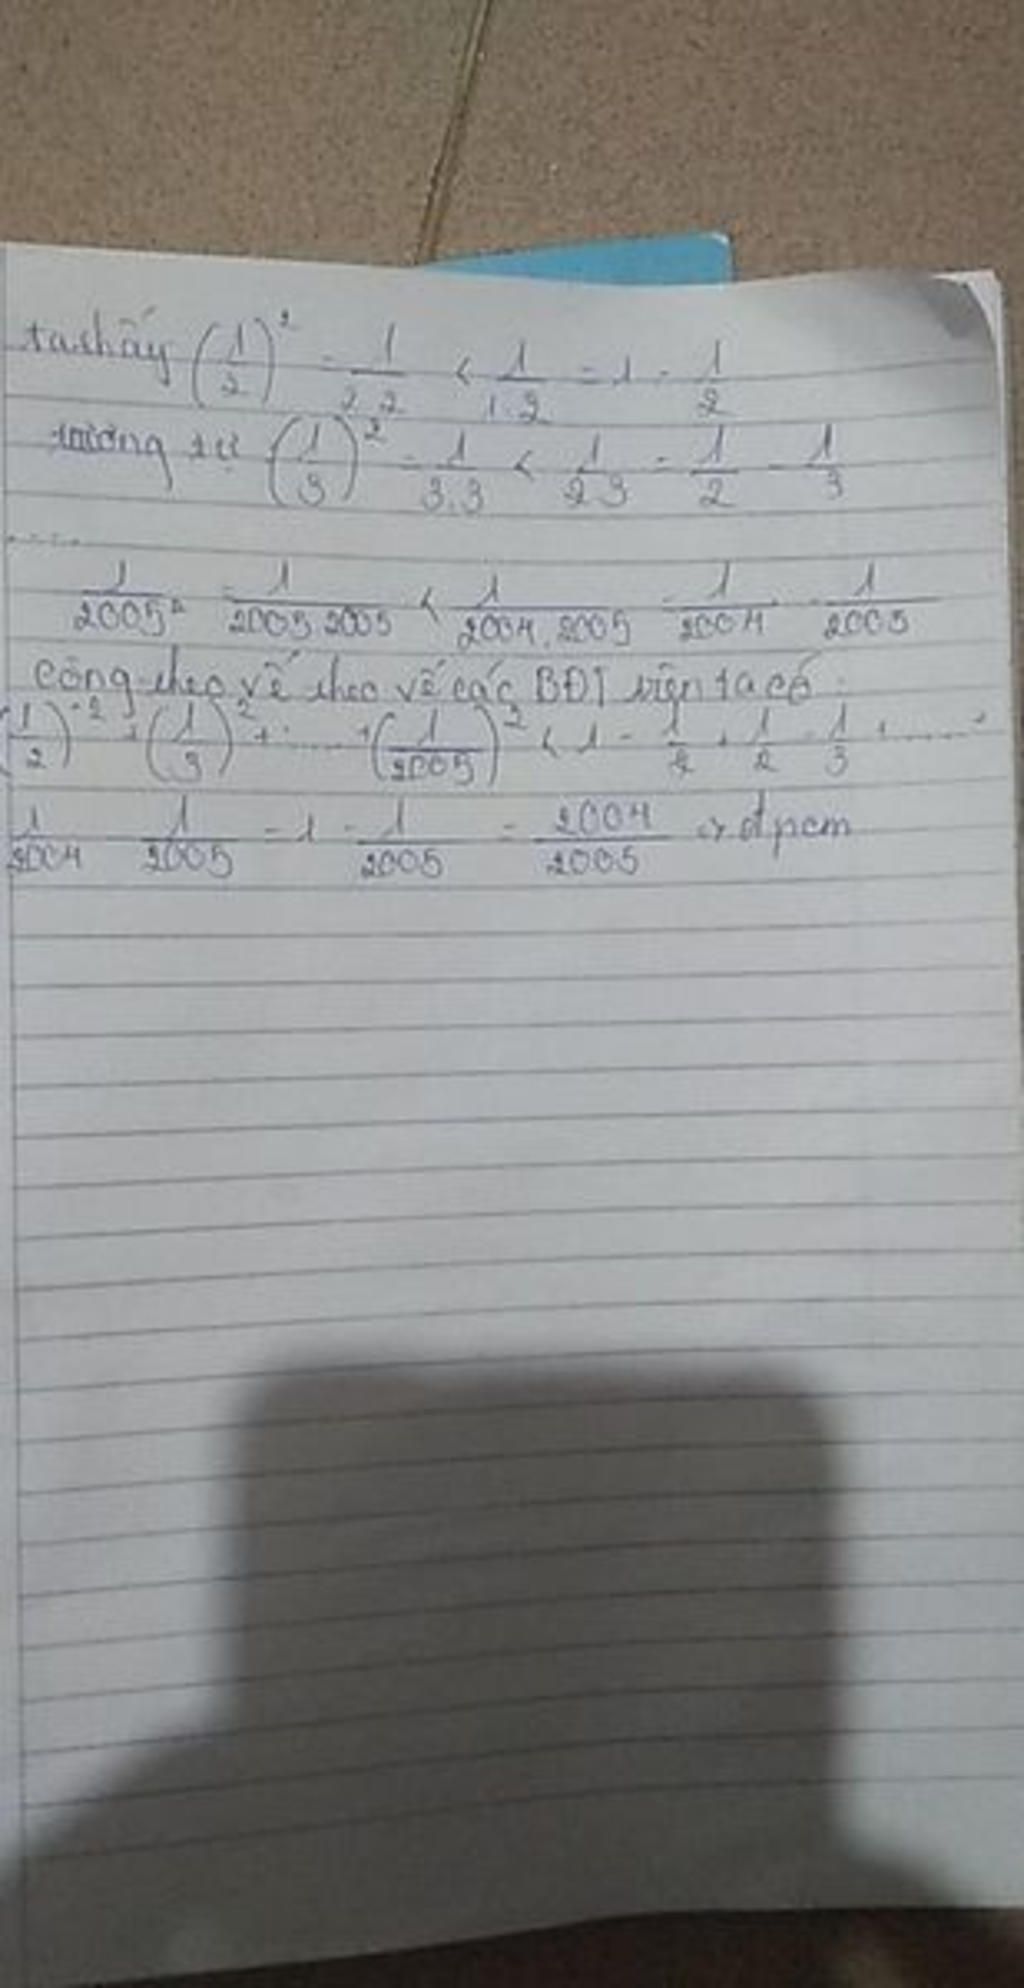 ta thấy (1/2)² = 1/2.2 < 1/1.2 = 1 - 1/2
tương tự (1/3)² = 1/3.3 < 1/2.3 = 1/2 - 1/3
.....
1/2005² = 1/2005.2005 < 1/2004.2005 = 1/2004 - 1/2005
cộng theo vế theo vế các BĐT trên ta có :
(1/2)² + (1/3)² + ..... + (1/2005)² < 1 - 1/2 + 1/2 - 1/3 + ..... +
1/2004 - 1/2005 = 1 - 1/2005 = 2004/2005 => đpcm